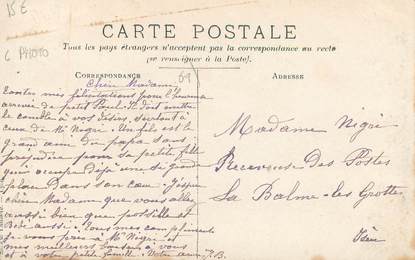 15 €
C PHOTO
CARTE POSTALE
Tous les pays étrangers n'acceptent pas la correspondance au recto
(se renseigner à la Poste).
CORRESPONDANCE
69
ADRESSE
Chère Madame,
mes félicitations pour l'heureuse
arrivée de petit Paul. Il doit mettre
le comble à vos désirs, surtout à
ceux de Mr Nigri. Un fils est le
grand ami du papa sans
préjudice pour sa petite fille
qui occupe déjà une si grande
place dans son cœur. J'espère
chère Madame que vous allez
aussi bien que possible et
bébé aussi. Tous mes compliments
je vous prie à Mr Nigri et
mes meilleurs à vous
et à votre petite famille. Votre amie
Madame Nigri
Receveuse Des Postes
La Balme-les-Grottes
Isère